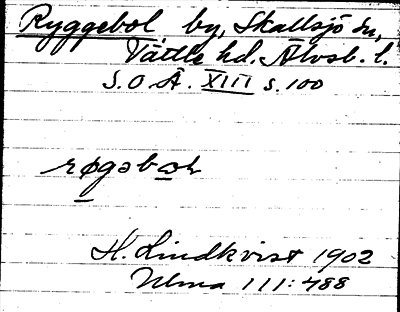 Ryggebol by, Skallsjö sn,
Vättle hd. Älvsb. l.
S.O.Ä. XIII s. 100
røgəbɷɫ
H. Lindkvist 1902
Ulma 111:488